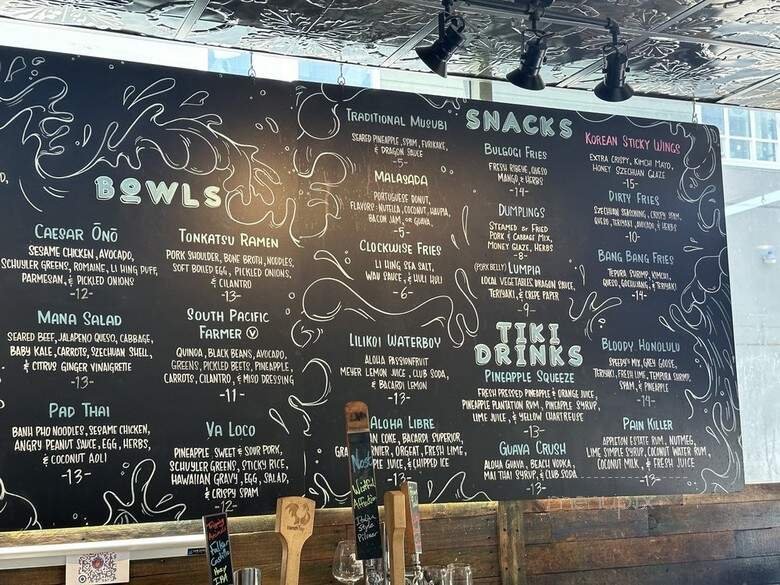 BOWLS
CAESAR ŌNŌ
SESAME CHICKEN, AVOCADO,
SCHUYLER GREENS, ROMAINE, LI HING PUFF,
PARMESAN, & PICKLED ONIONS
-12-
MANA SALAD
SEARED BEEF, JALAPENO QUESO, CABBAGE,
BABY KALE, CARROTS, SZECHUAN SHELL,
& CITRUS GINGER VINAIGRETTE
-13-
PAD THAI
BANH PHO NOODLES, SESAME CHICKEN,
ANGRY PEANUT SAUCE, EGG, HERBS,
& COCONUT AOLI
-13-
TONKATSU RAMEN
PORK SHOULDER, BONE BROTH, NOODLES,
SOFT BOILED EGG, PICKLED ONIONS,
& CILANTRO
-13-
SOUTH PACIFIC
FARMER V
QUINOA, BLACK BEANS, AVOCADO,
GREENS, PICKLED BEETS, PINEAPPLE,
CARROTS, CILANTRO, & MISO DRESSING
-11-
VA LOCO
PINEAPPLE SWEET & SOUR PORK,
SCHUYLER GREENS, STICKY RICE,
HAWAIIAN GRAVY, EGG, SALAD,
& CRISPY SPAM
-12-
SNACKS
TRADITIONAL MUSUBI
SEARED PINEAPPLE, SPAM, FURIKAKE,
& DRAGON SAUCE
-5-
MALASADA
PORTUGUESE DONUT,
FLAVORS: NUTELLA, COCONUT, HAUPIA,
BACON JAM, OR GUAVA
-5-
CLOCKWISE FRIES
LI HING SEA SALT,
WAU SAUCE, & HULI HULI
-6-
BULGOGI FRIES
FRESH RIBEYE, QUESO
MANGO, & HERBS
-14-
DUMPLINGS
STEAMED OR FRIED
PORK & CABBAGE MIX,
MONEY GLAZE, HERBS
-8-
(PORK BELLY) LUMPIA
LOCAL VEGETABLES DRAGON SAUCE,
TERIYAKI, & CREPE PAPER
-9-
KOREAN STICKY WINGS
EXTRA CRISPY, KIMCHI MAYO,
HONEY SZECHUAN GLAZE
-15-
DIRTY FRIES
SZECHUAN SEASONING, CRISPY SPAM,
QUESO, TERIYAKI, AVOCADO, & HERBS
-10-
BANG BANG FRIES
TEPURA SHRIMP, KIMCHI,
QUESO, GOCHUJANG, & TERIYAKI
-14-
TIKI
DRINKS
LILIKOI WATERBOY
ALOHA PASSIONFRUIT
MEYER LEMON JUICE, CLUB SODA,
& BACARDI LEMON
-13-
ALOHA LIBRE
COKE, BACARDI SUPERIOR,
ORGEAT, FRESH LIME,
JUICE, & CHIPPED ICE
PINEAPPLE SQUEEZE
FRESH PRESSED PINEAPPLE & ORANGE JUICE,
PINEAPPLE PLANTATION RUM, PINEAPPLE SYRUP,
LIME JUICE, & YELLOW CHARTREUSE
-13-
GUAVA CRUSH
ALOHA GUAVA, BEACH VODKA,
MAI THAI SYRUP, & CLUB SODA
-13-
BLOODY HONOLULU
SPEEDY'S MIX, GREY GOOSE,
TERIYAKI, FRESH LIME, TEMPURA SHRIMP,
SPAM, & PINEAPPLE
-14-
PAIN KILLER
APPLETON ESTATE RUM, NUTMEG,
LIME SIMPLE SYRUP, COCONUT WATER RUM,
COCONUT MILK, & FRESH JUICE
-13-
Italian
Style
Pilsner
IPA